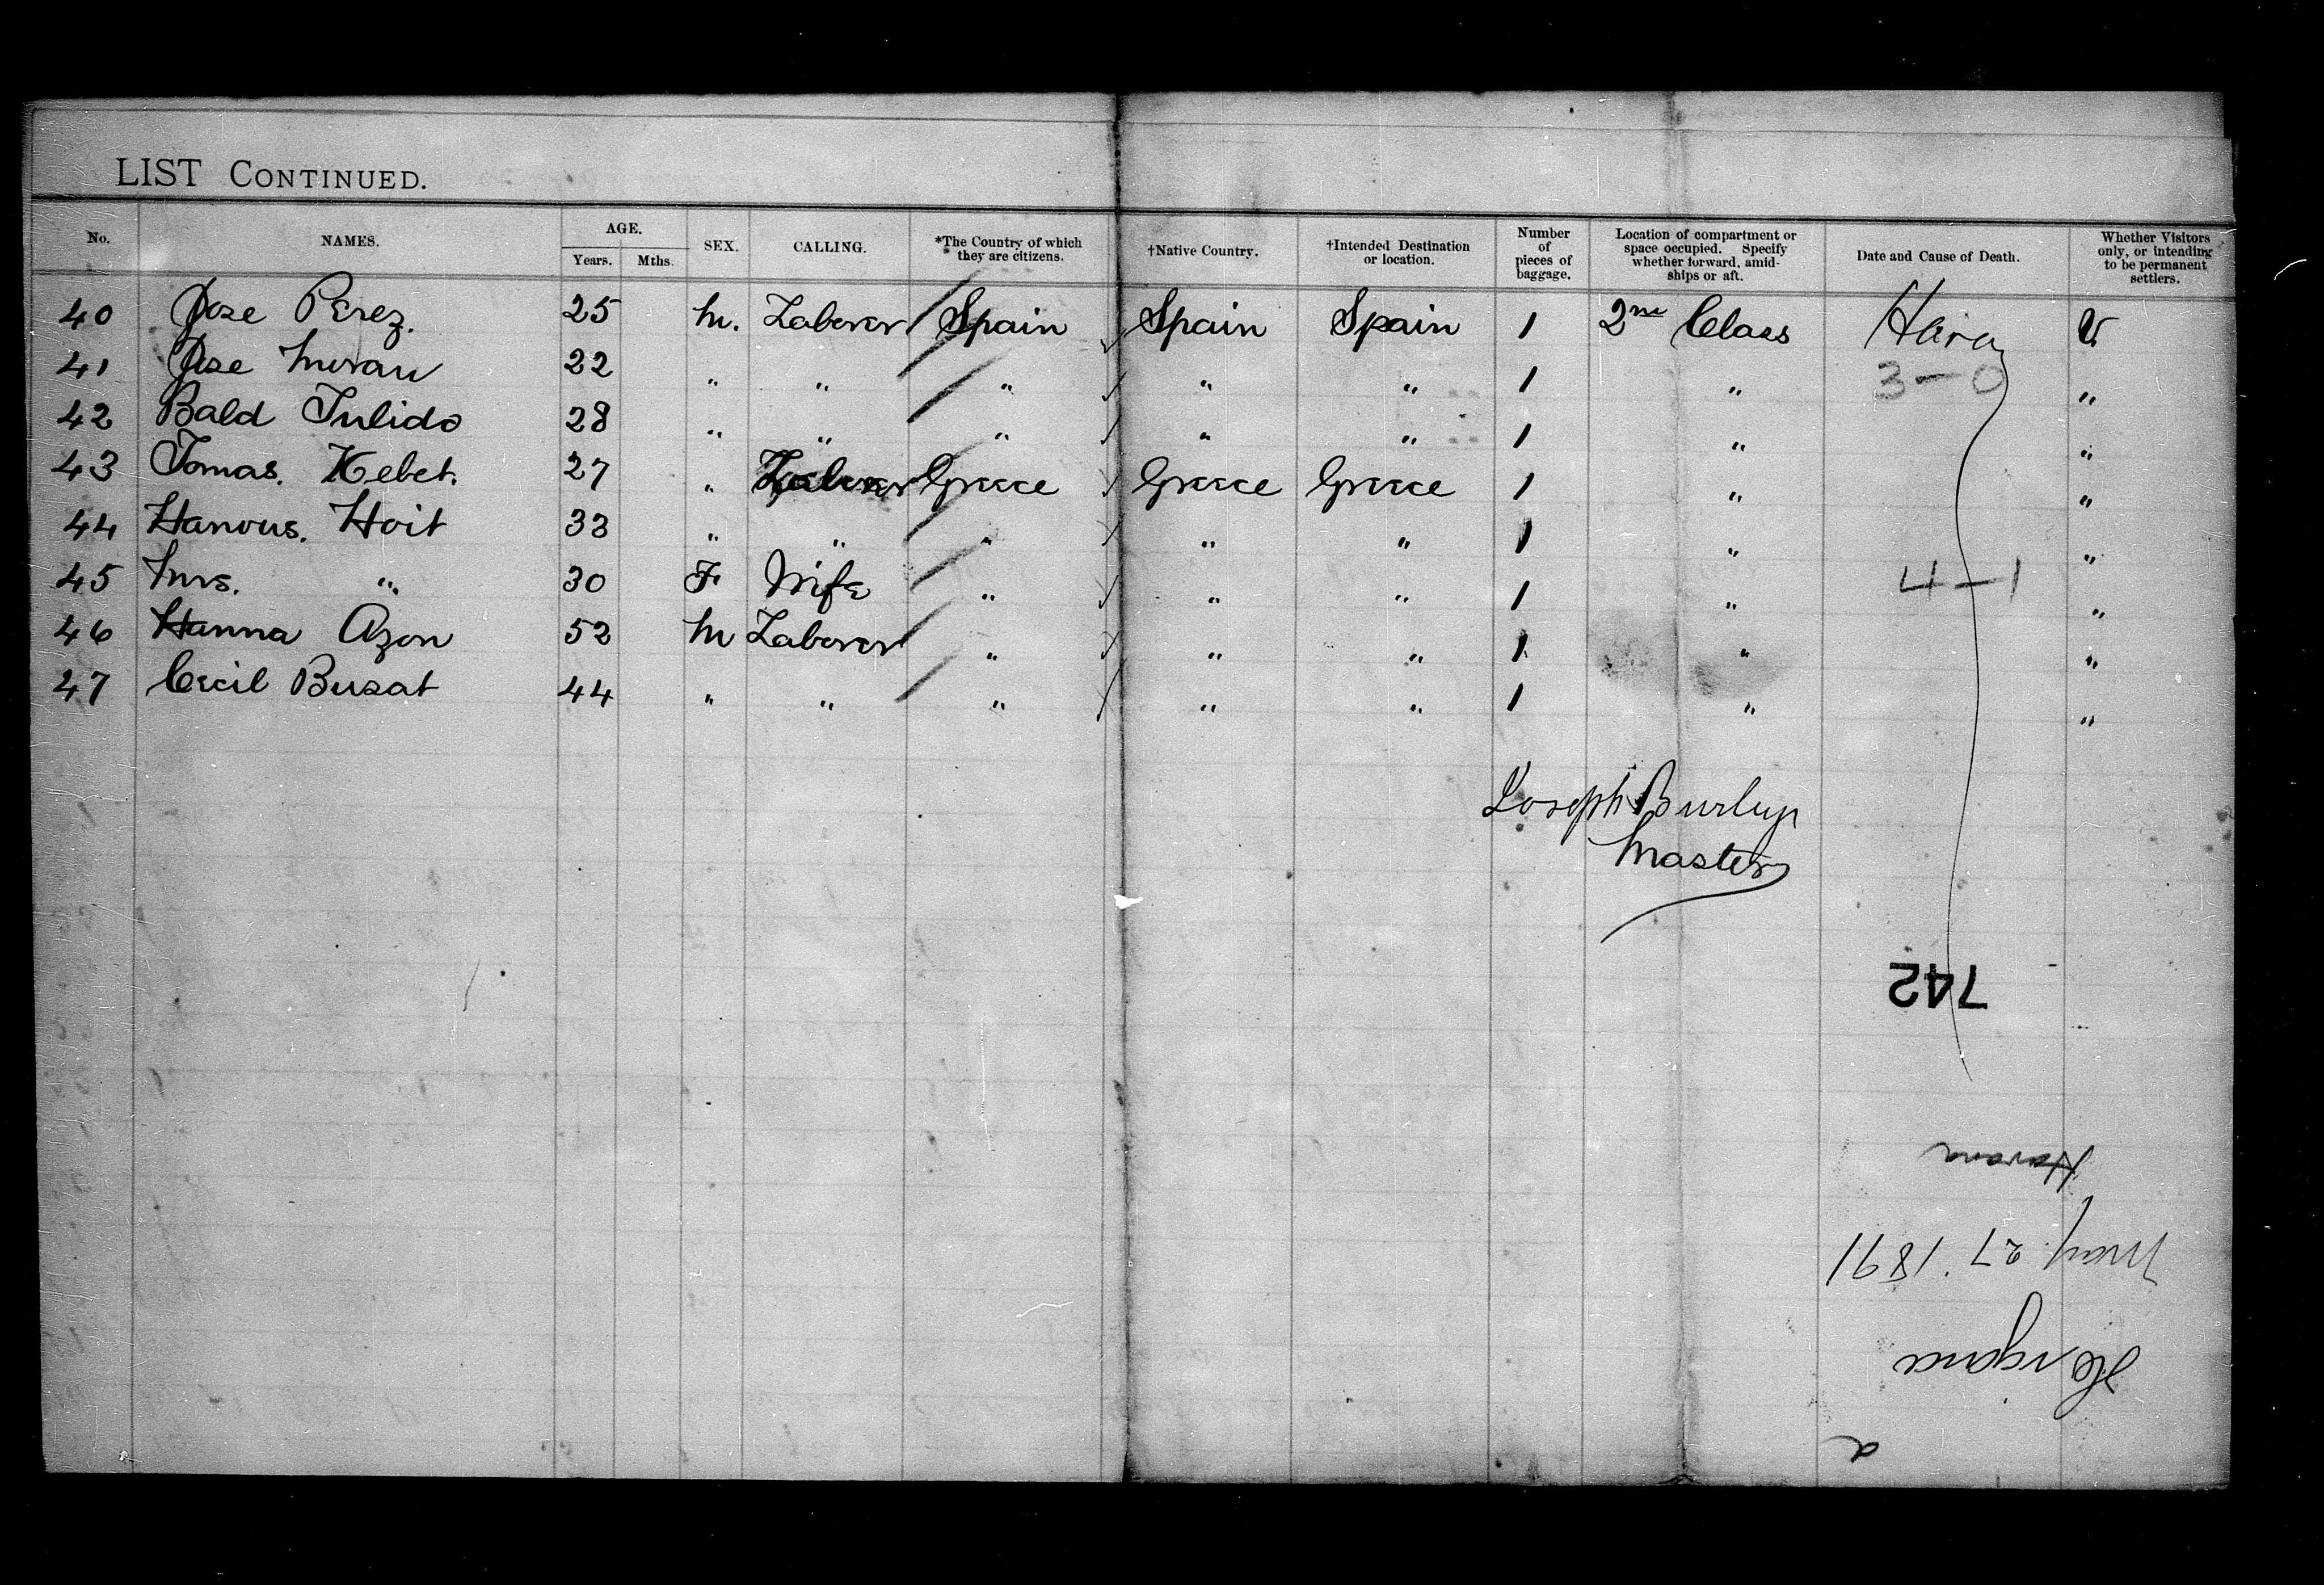 LIST CONTINUED.
No. NAMES. AGE. Years. Mths. SEX. CALLING. *The Country of which they are citizens. †Native Country. †Intended Destination or location. Number of pieces of baggage. Location of compartment or space occupied. Specify whether forward, amidships or aft. Date and Cause of Death. Whether Visitors only, or intending to be permanent settlers.
40 Jose Perez. 25 M. Laborer Spain Spain Spain 1 2nd Class V.
41 Jose Moran 22 " " " " " 1 " 3-0 "
42 Bald Tulido 28 " " " " " 1 " "
43 Tomas. Kebet. 27 " Laborer Greece Greece Greece 1 " "
44 Hanous. Hoit 33 " " " " " 1 " "
45 Mrs. " 30 F Wife " " " 1 " 4-1 "
46 Hanna Azon 52 M Laborer " " " 1 " "
47 Cecil Busat 44 " " " " " 1 " "
Joseph Burley
Master
742
Havana
May 27. 1891
a